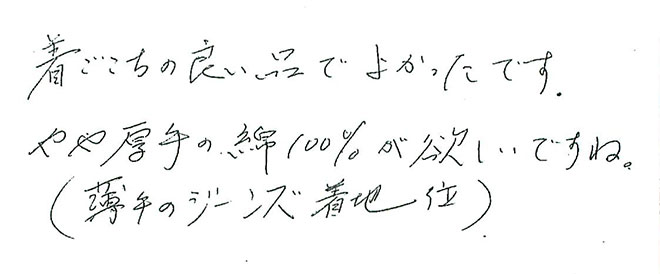 着ごこちの良い品でよかったです.
やや厚手の綿100%が欲しいですね。
(薄手のジーンズ着地位)